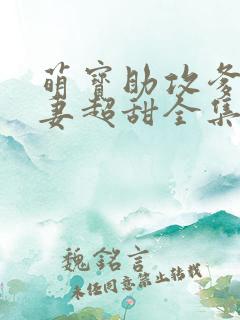 萌寶助攻爹
妻超甜全集
魏銘言
未經同意禁止轉載